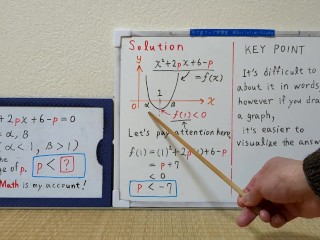 + 2px + 6 - p = 0
= α, β
(α < 1, β > 1)
The
ge of p. p < ?
Math is my account!
Solution
x²+2px+6-p
= f(x)
y
1
0 α β x
f(1) < 0
Let's pay attention here
f(1) = (1)²+2p(1)+6-p
= p+7
< 0
p < -7
KEY POINT
It's difficult to
about it in words,
however if you dra
a graph,
it's easier to
visualize the answ